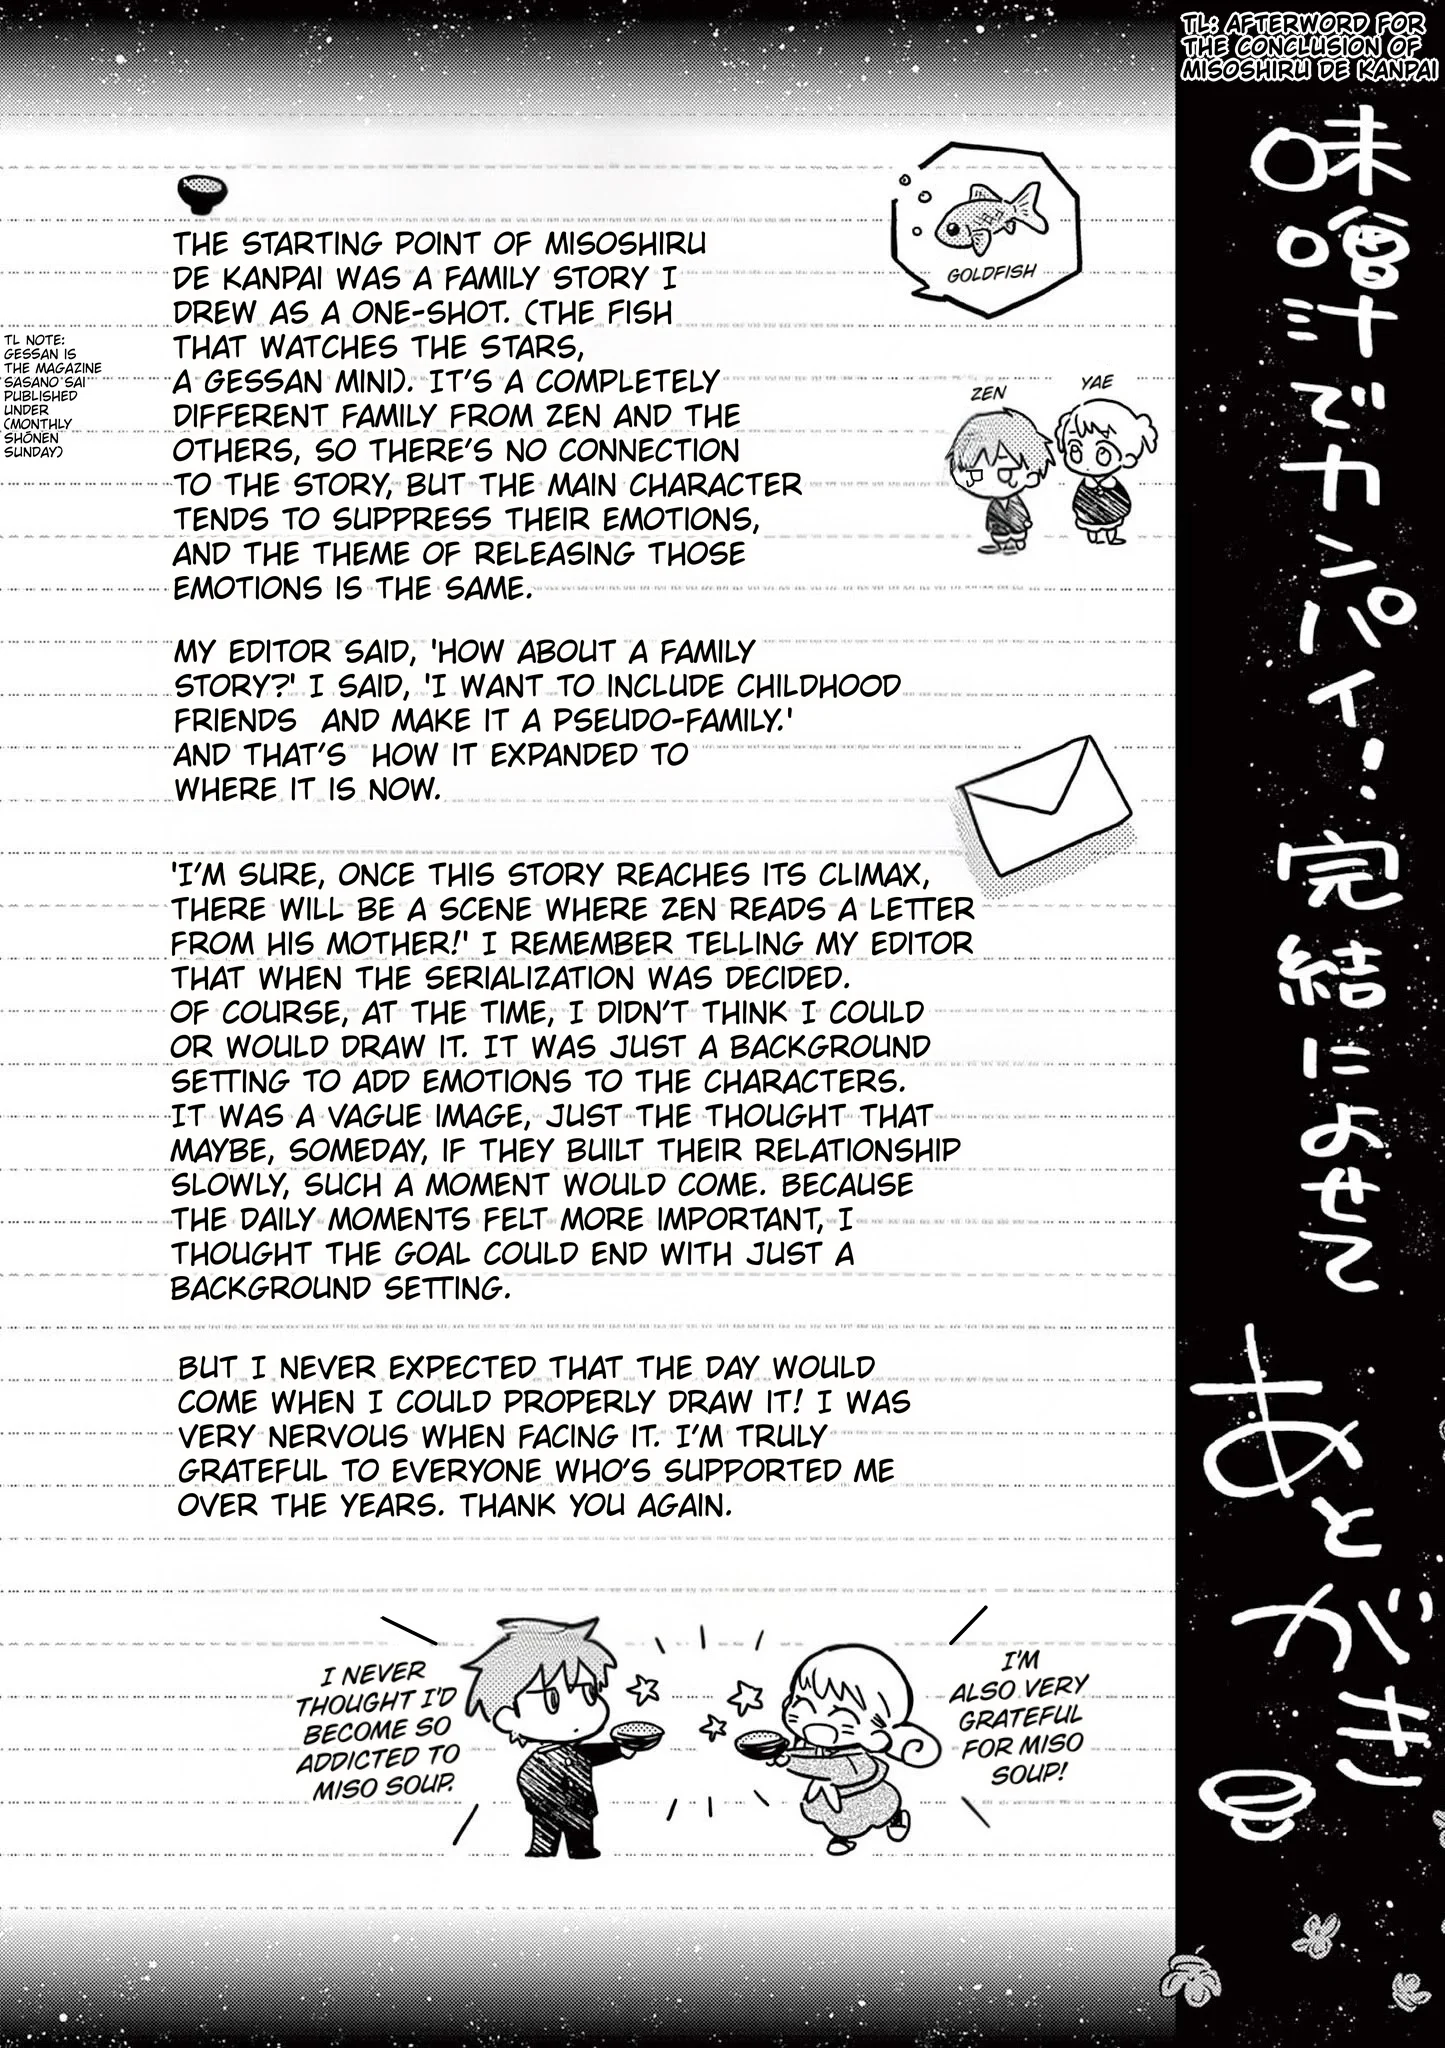 TL: AFTERWORD FOR
THE CONCLUSION OF
MISOSHIRU DE KANPAI
味噌汁でカンパイ!完結によせて
あとがき
GOLDFISH
THE STARTING POINT OF MISOSHIRU
DE KANPAI WAS A FAMILY STORY I
DREW AS A ONE-SHOT. (THE FISH
THAT WATCHES THE STARS,
A GESSAN MINI). IT'S A COMPLETELY
DIFFERENT FAMILY FROM ZEN AND THE
OTHERS, SO THERE'S NO CONNECTION
TO THE STORY, BUT THE MAIN CHARACTER
TENDS TO SUPPRESS THEIR EMOTIONS,
AND THE THEME OF RELEASING THOSE
EMOTIONS IS THE SAME.
TL NOTE:
GESSAN IS
THE MAGAZINE
SASANO SAI
PUBLISHED
UNDER
(MONTHLY
SHŌNEN
SUNDAY)
ZEN
YAE
MY EDITOR SAID, 'HOW ABOUT A FAMILY
STORY?' I SAID, 'I WANT TO INCLUDE CHILDHOOD
FRIENDS AND MAKE IT A PSEUDO-FAMILY.'
AND THAT'S HOW IT EXPANDED TO
WHERE IT IS NOW.
'I'M SURE, ONCE THIS STORY REACHES ITS CLIMAX,
THERE WILL BE A SCENE WHERE ZEN READS A LETTER
FROM HIS MOTHER!' I REMEMBER TELLING MY EDITOR
THAT WHEN THE SERIALIZATION WAS DECIDED.
OF COURSE, AT THE TIME, I DIDN'T THINK I COULD
OR WOULD DRAW IT. IT WAS JUST A BACKGROUND
SETTING TO ADD EMOTIONS TO THE CHARACTERS.
IT WAS A VAGUE IMAGE, JUST THE THOUGHT THAT
MAYBE, SOMEDAY, IF THEY BUILT THEIR RELATIONSHIP
SLOWLY, SUCH A MOMENT WOULD COME. BECAUSE
THE DAILY MOMENTS FELT MORE IMPORTANT, I
THOUGHT THE GOAL COULD END WITH JUST A
BACKGROUND SETTING.
BUT I NEVER EXPECTED THAT THE DAY WOULD
COME WHEN I COULD PROPERLY DRAW IT! I WAS
VERY NERVOUS WHEN FACING IT. I'M TRULY
GRATEFUL TO EVERYONE WHO'S SUPPORTED ME
OVER THE YEARS. THANK YOU AGAIN.
I NEVER
THOUGHT I'D
BECOME SO
ADDICTED TO
MISO SOUP.
I'M
ALSO VERY
GRATEFUL
FOR MISO
SOUP!